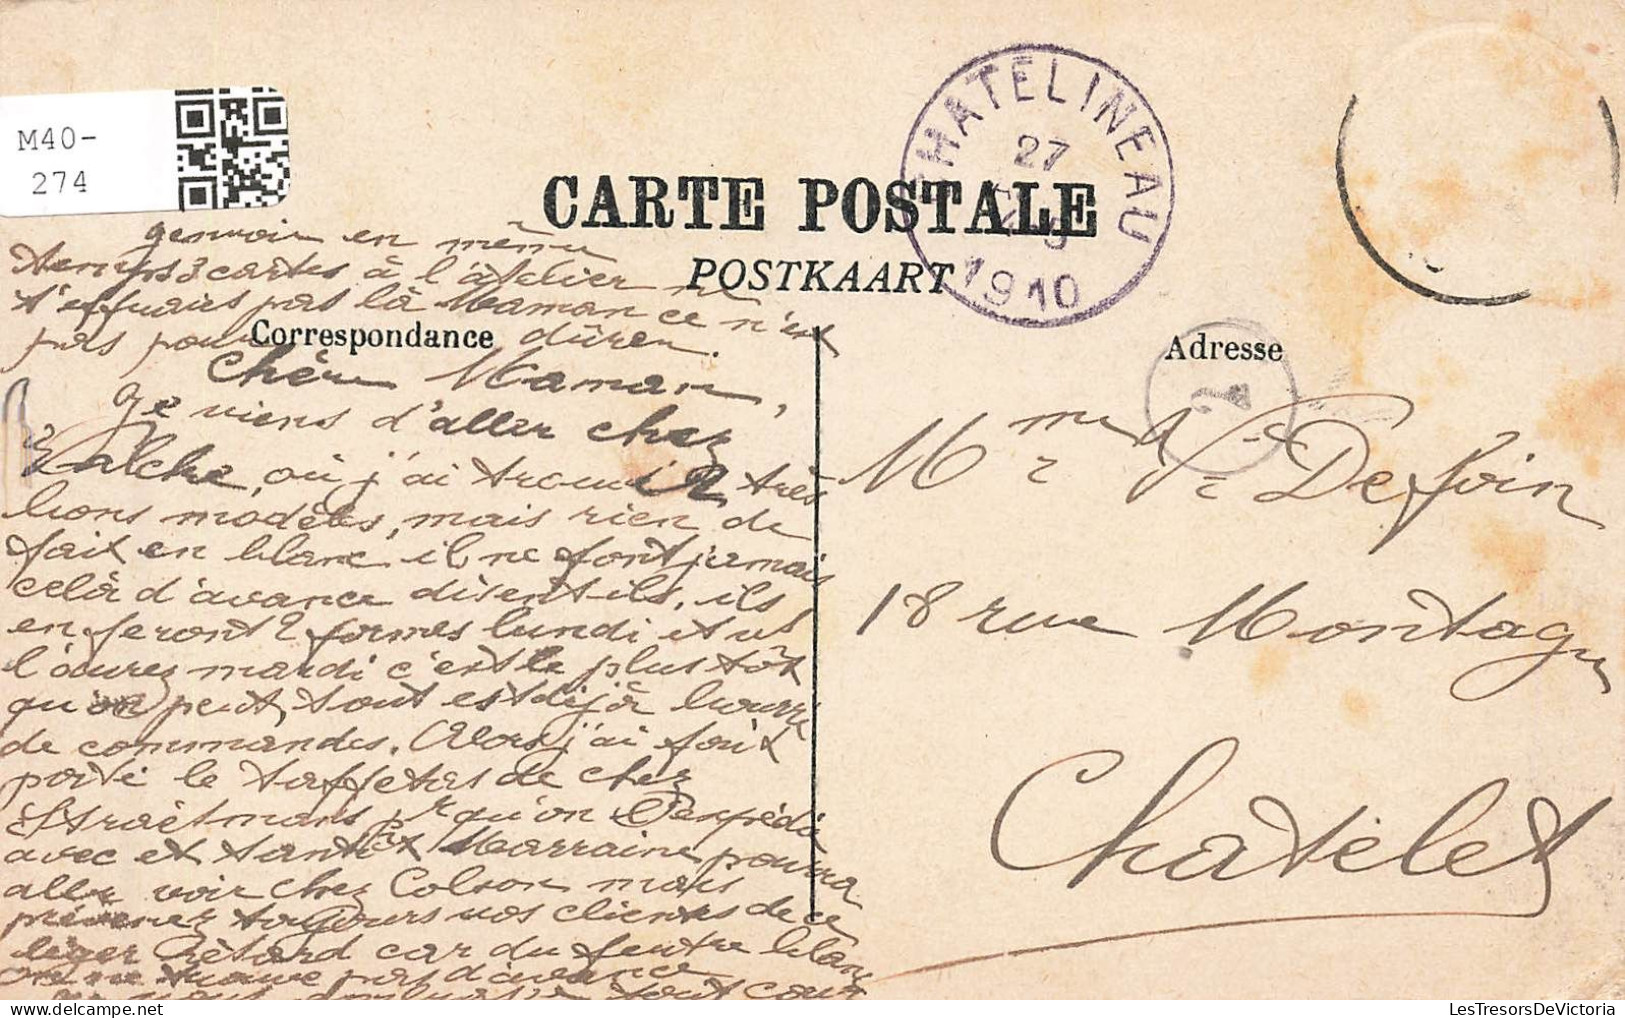 M40-
274
CHATELINEAU
27
1910
CARTE POSTALE
POSTKAART
en même
temps 3 cartes à l'atelier ne
t'effraies pas là Maman ce n'est
pas pour dûren.
Correspondance
Adresse
2
Chère Maman,
Je viens d'aller chez
où j'ai trouvé 2 très
bons modèles, mais rien de
fait en blanc il ne font jamais
celà d'avance disent ils, ils
en feront 2 formes lundi et us
l'aurez mardi c'est le plus tôt
qu'on peut, tout est déjà bourré
de commandes. Alors j'ai fait
porté le taffetas de chez
Straetmans pr qu'on l'expédie
avec et tantôt Marraine pourra
aller voir chez Colson mais
prévenez toujours vos clientes de ce
léger retard car du feutre blanc
on ne trouve pas d'avance
tout
Mme Ve Defoin
18 rue Montagne
Chatelet
LesTresorsDeVictoria